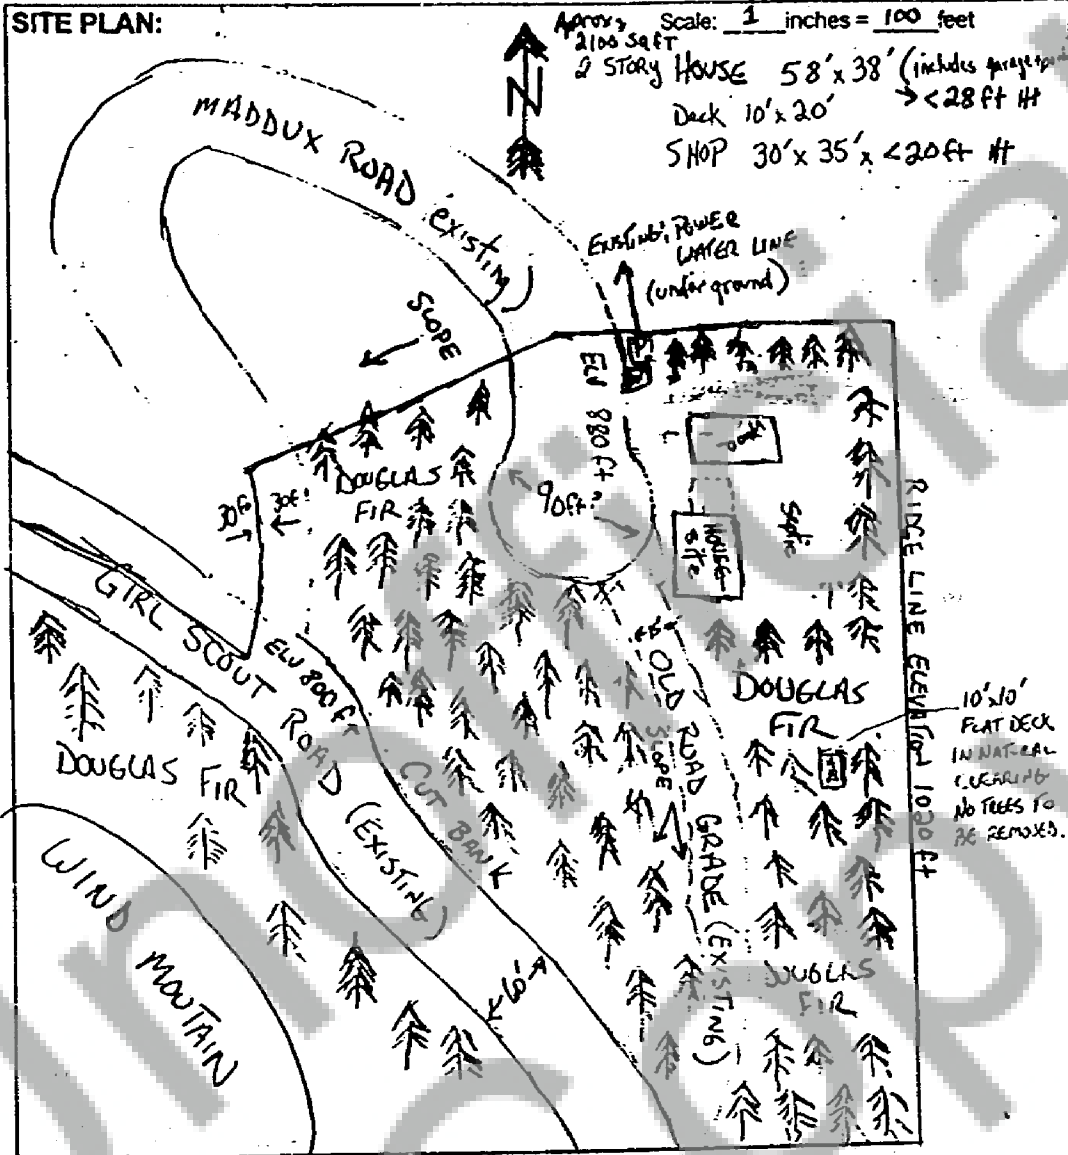 SITE PLAN:
Scale: 1 inches = 100 feet
Aprox
2100 SqFT
2 STORY HOUSE 58' x 38' (includes
→ <28 ft Ht
Deck 10' x 20'
SHOP 30' x 35' x <20ft Ht
N
MADDUX ROAD (existing)
EXISTING, POWER
WATER LINE
(under ground)
SLOPE
ELV 880 ft
DOUGLAS
FIR
30ft
30ft
90ft
HOUSE
Site
RIDGE LINE ELEVATION 1020 ft
GIRL SCOUT ROAD (EXISTING)
ELV 800 ft
CUT BANK
OLD ROAD GRADE (EXISTING)
SLOPE
DOUGLAS
FIR
10'x10'
FLAT DECK
IN NATURAL
CLEARING
NO TREES TO
BE REMOVED.
DOUGLAS FIR
WIND
MOUTAIN
60'
DOUGLAS
FIR